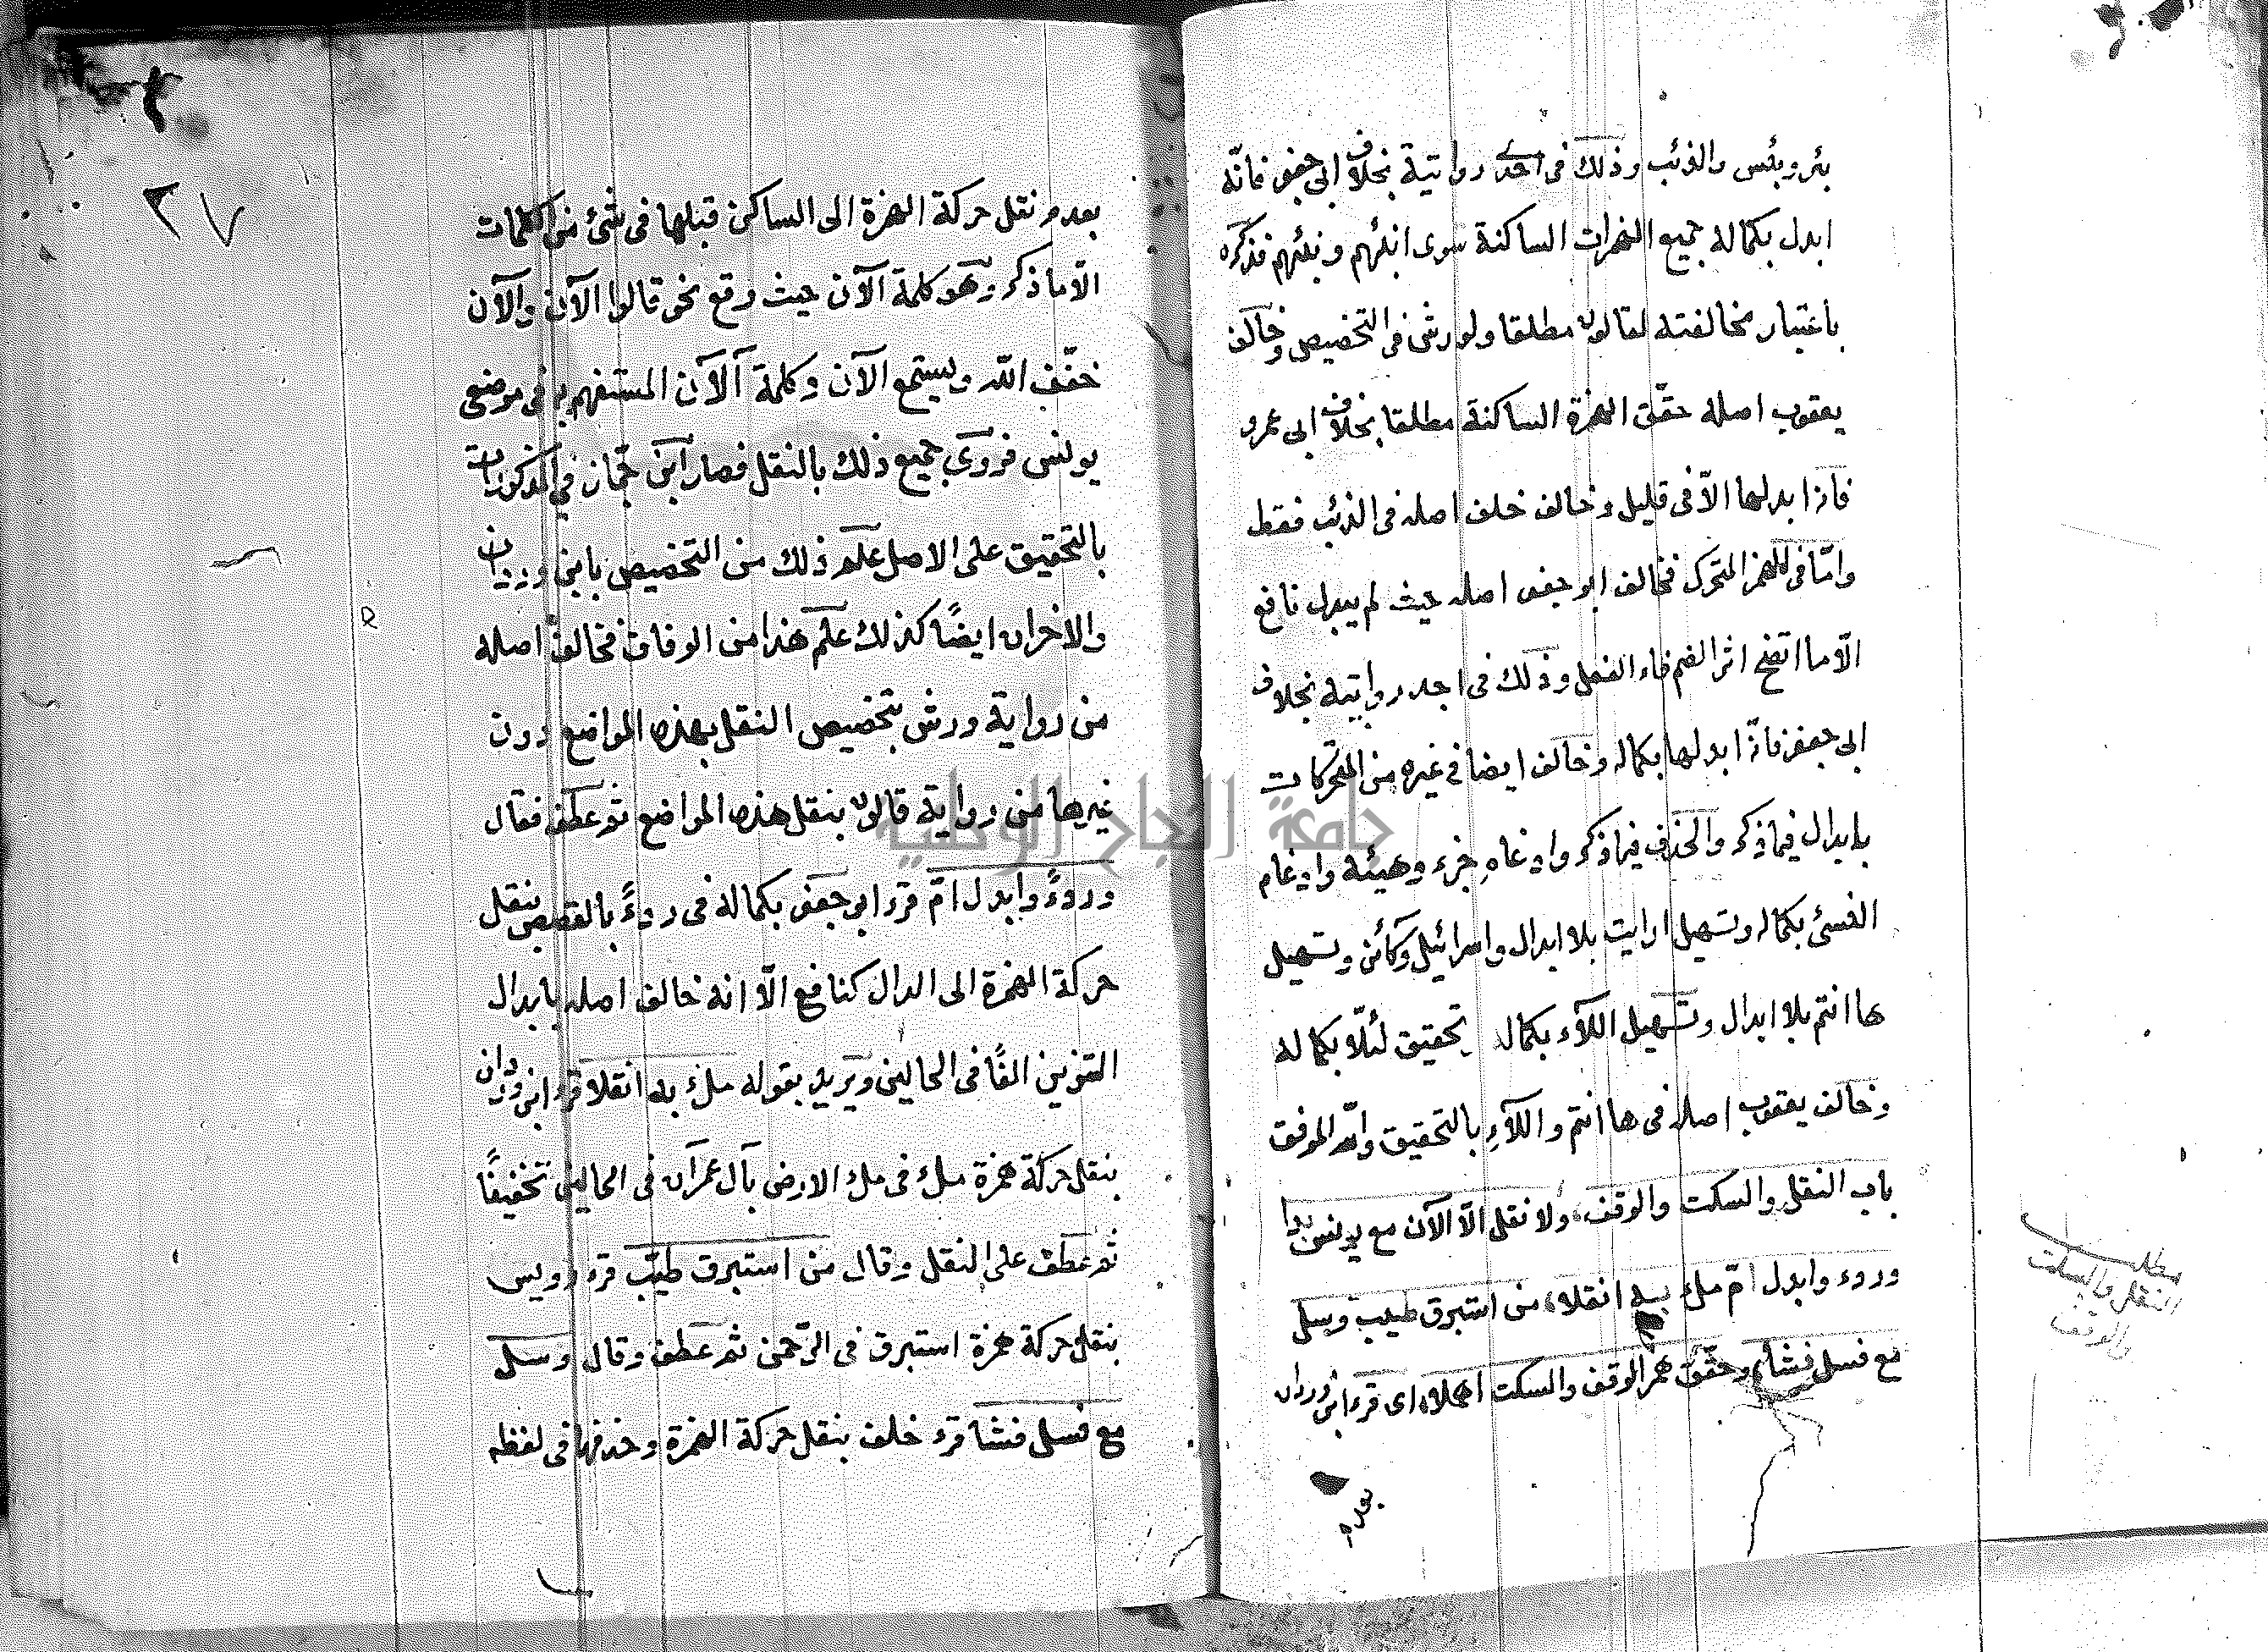 بئر وبئس والذئب وذلك في احدى روايتيه بخلاف ابي جعفر فانه
ابدل بكماله جميع الهمزات الساكنة سوى انبئهم ونبئهم فذكره
باعتبار مخالفته لقالون مطلقا ولورش في التخصيص وخالف
يعقوب اصله حقق الهمزة الساكنة مطلقا بخلاف ابي عمرو
فانه ابدلها الّا في قليل وخالف خلف اصله في الذئب فقط
وامّا في الهمز المتحرك فخالف ابو جعفر اصله حيث لم يبدل نافع
الّا ما انفتح اثر الضم فاء الفعل وذلك في احد روايتيه بخلاف
ابي جعفر فانه ابدلها بكماله وخالف ايضا في غيره من المتحركات
بابدال فيما ذكر والحذف فيما ذكر وادغام جزء وهيئة وادغام
النسئ بكماله وتسهيل ارايت بلا ابدال واسرائيل وكائن وتسهيل
ها انتم بلا ابدال وتسهيل اللآء بكماله تحقيق لئلّا بكماله
وخالف يعقوب اصله في ها انتم واللآء بالتحقيق والله الموفق
باب النقل والسكت والوقف ولا نقل الّا الآن مع يونس بدا
وردء وابدل امّ ملء به انقلا من استبرق طيب وسل
مع فسل فشا وحقّق همز الوقف والسكت اهملا اى قرء ابن وردان
بعدم
مطلب
النقل والسكت
والوقف
٢٧
بعدم نقل حركة الهمزة الى الساكن قبلها في شئ من الكلمات
الّا ما ذكر وهو كلمة الآن حيث وقع نحو قالوا الآن والآن
خفّف الله ويستمع الآن وكلمة آلآن المستفهم به في موضعى
يونس فروى جميع ذلك بالنقل فصار ابن جمّاز في المذكورات
بالتحقيق على الاصل علم ذلك من التخصيص بابن وردان
والاخران ايضًا كذلك علم هذا من الوفاق فخالف اصله
من رواية ورش بتخصيص النقل بهذه المواضع دون
غيرها من رواية قالون بنقل هذه المواضع ثم عطف فقال
وردءً وابدل امّ قرء ابو جعفر بكماله في ردءً بالقصص بنقل
حركة الهمزة الى الدال كنافع الّا انه خالف اصله بابدال
التنوين الفًا في الحالين ويريد بقوله ملء به انقلا قرء ابن وردان
بنقل حركة همزة ملء في ملء الارض بآل عمران في الحالين تخفيفًا
ثم عطف على النقل وقال من استبرق طيّب قرء رويس
بنقل حركة همزة استبرق في الرّحمن ثم عطف وقال وسل
مع فسل فشا قرء خلف بنقل حركة الهمزة وحذفها في لفظه
جامعة النجاح الوطنية